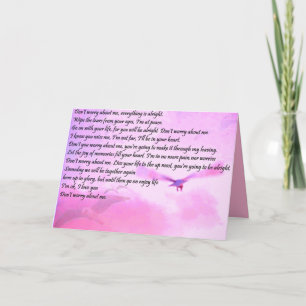 Don't worry about me, everything is alright.
Wipe the tears from your eyes, I'm at peace.
Go on with your life, for you will be alright. Don't worry about me.
I know you miss me, I'm not far, I'll be in your heart.
Don't you worry about me, you're going to make it through my leaving.
Let the joy of memories fill your heart. I'm in no more pain, nor worries
Don't worry about me. Live your life to the up most, you're going to be alright.
Someday we will be together again
here up in glory, but until then go on enjoy life.
I'm ok, I love you
Don't worry about me.